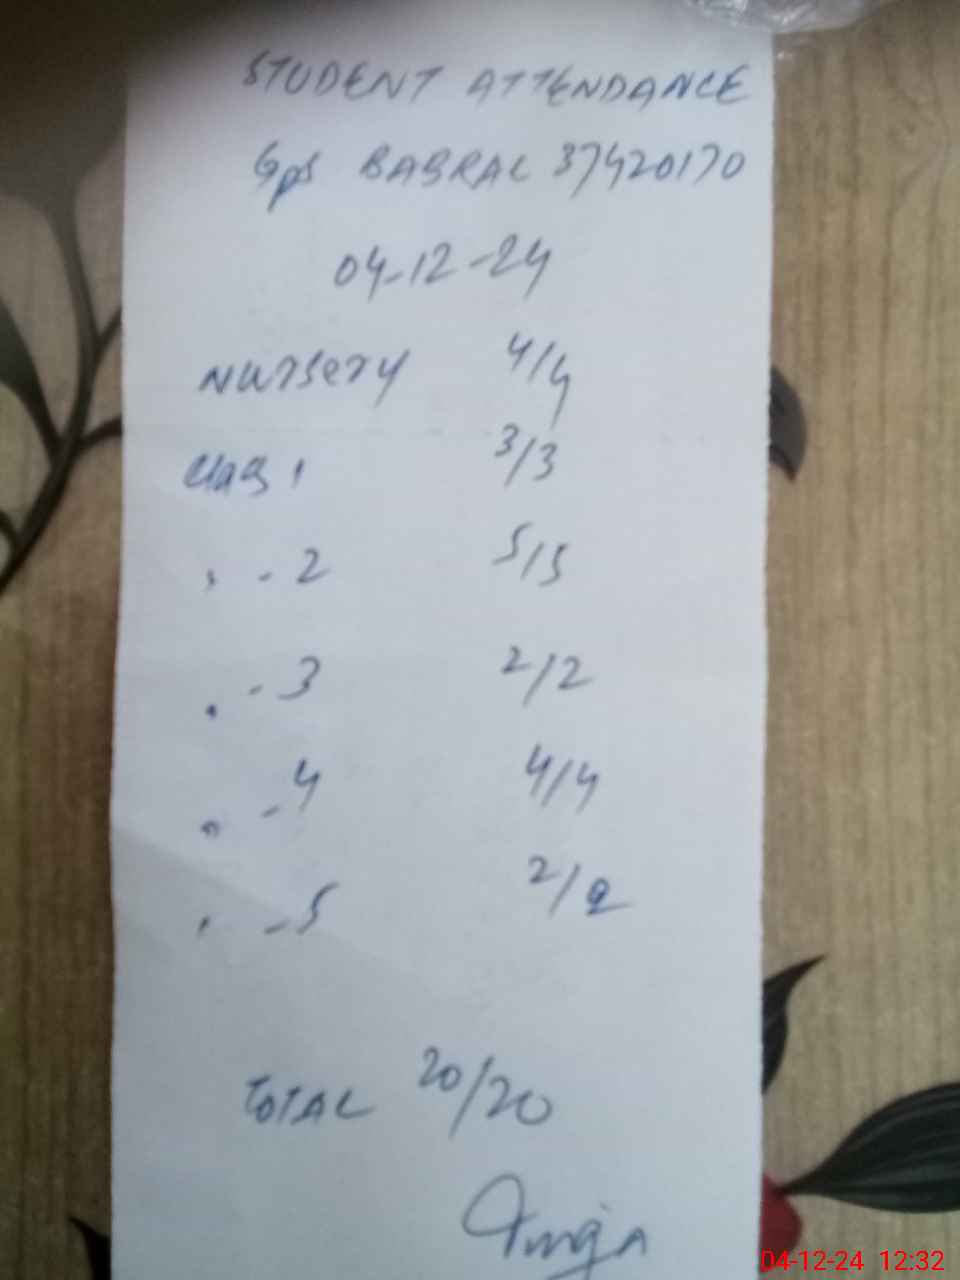 STUDENT ATTENDANCE
Gps BABRAL 37420170
04-12-24
Nursery 4/4
Class 1 3/3
" - 2 5/5
" - 3 2/2
" - 4 4/4
" - 5 2/2
TOTAL 20/20
04-12-24 12:32